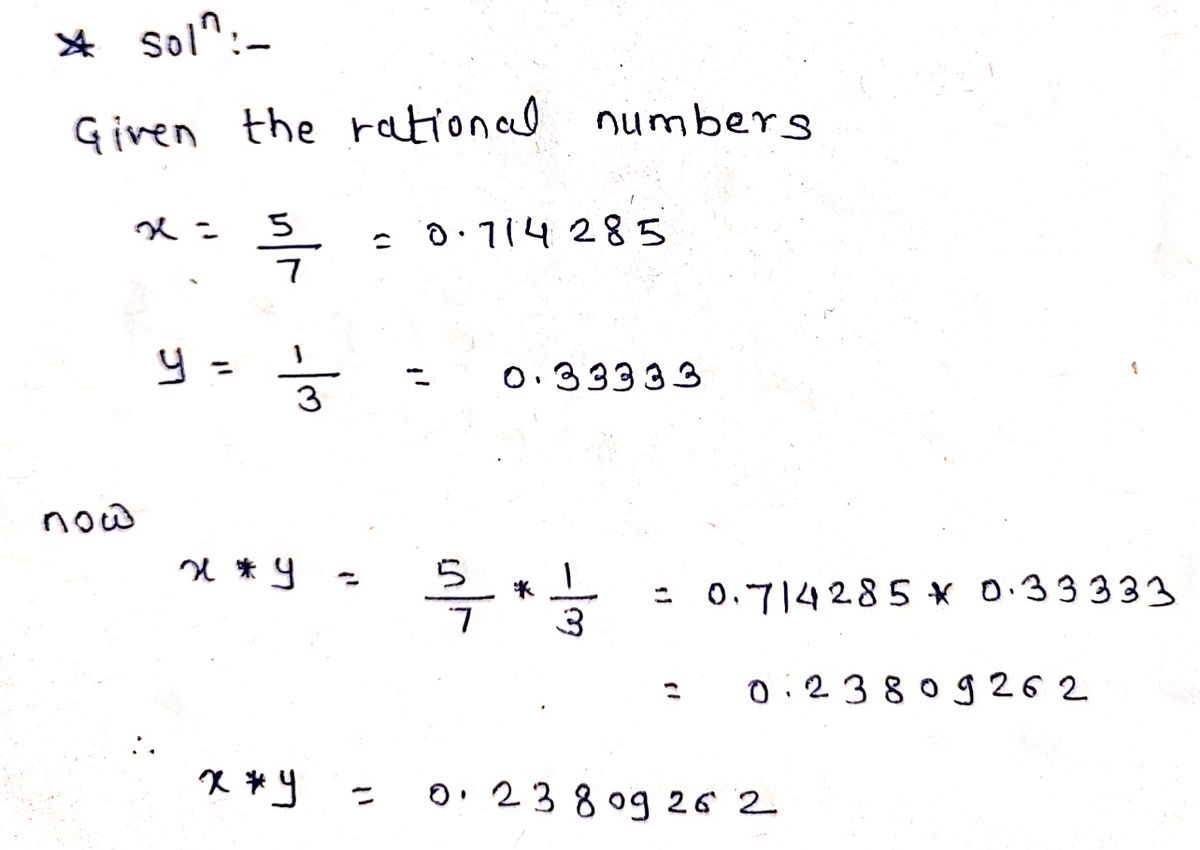 * solⁿ:-
Given the rational numbers
x = 5/7 = 0.714285
y = 1/3 = 0.33333
now
x * y = 5/7 * 1/3 = 0.714285 * 0.33333
= 0.23809262
∴
x * y = 0.23809262